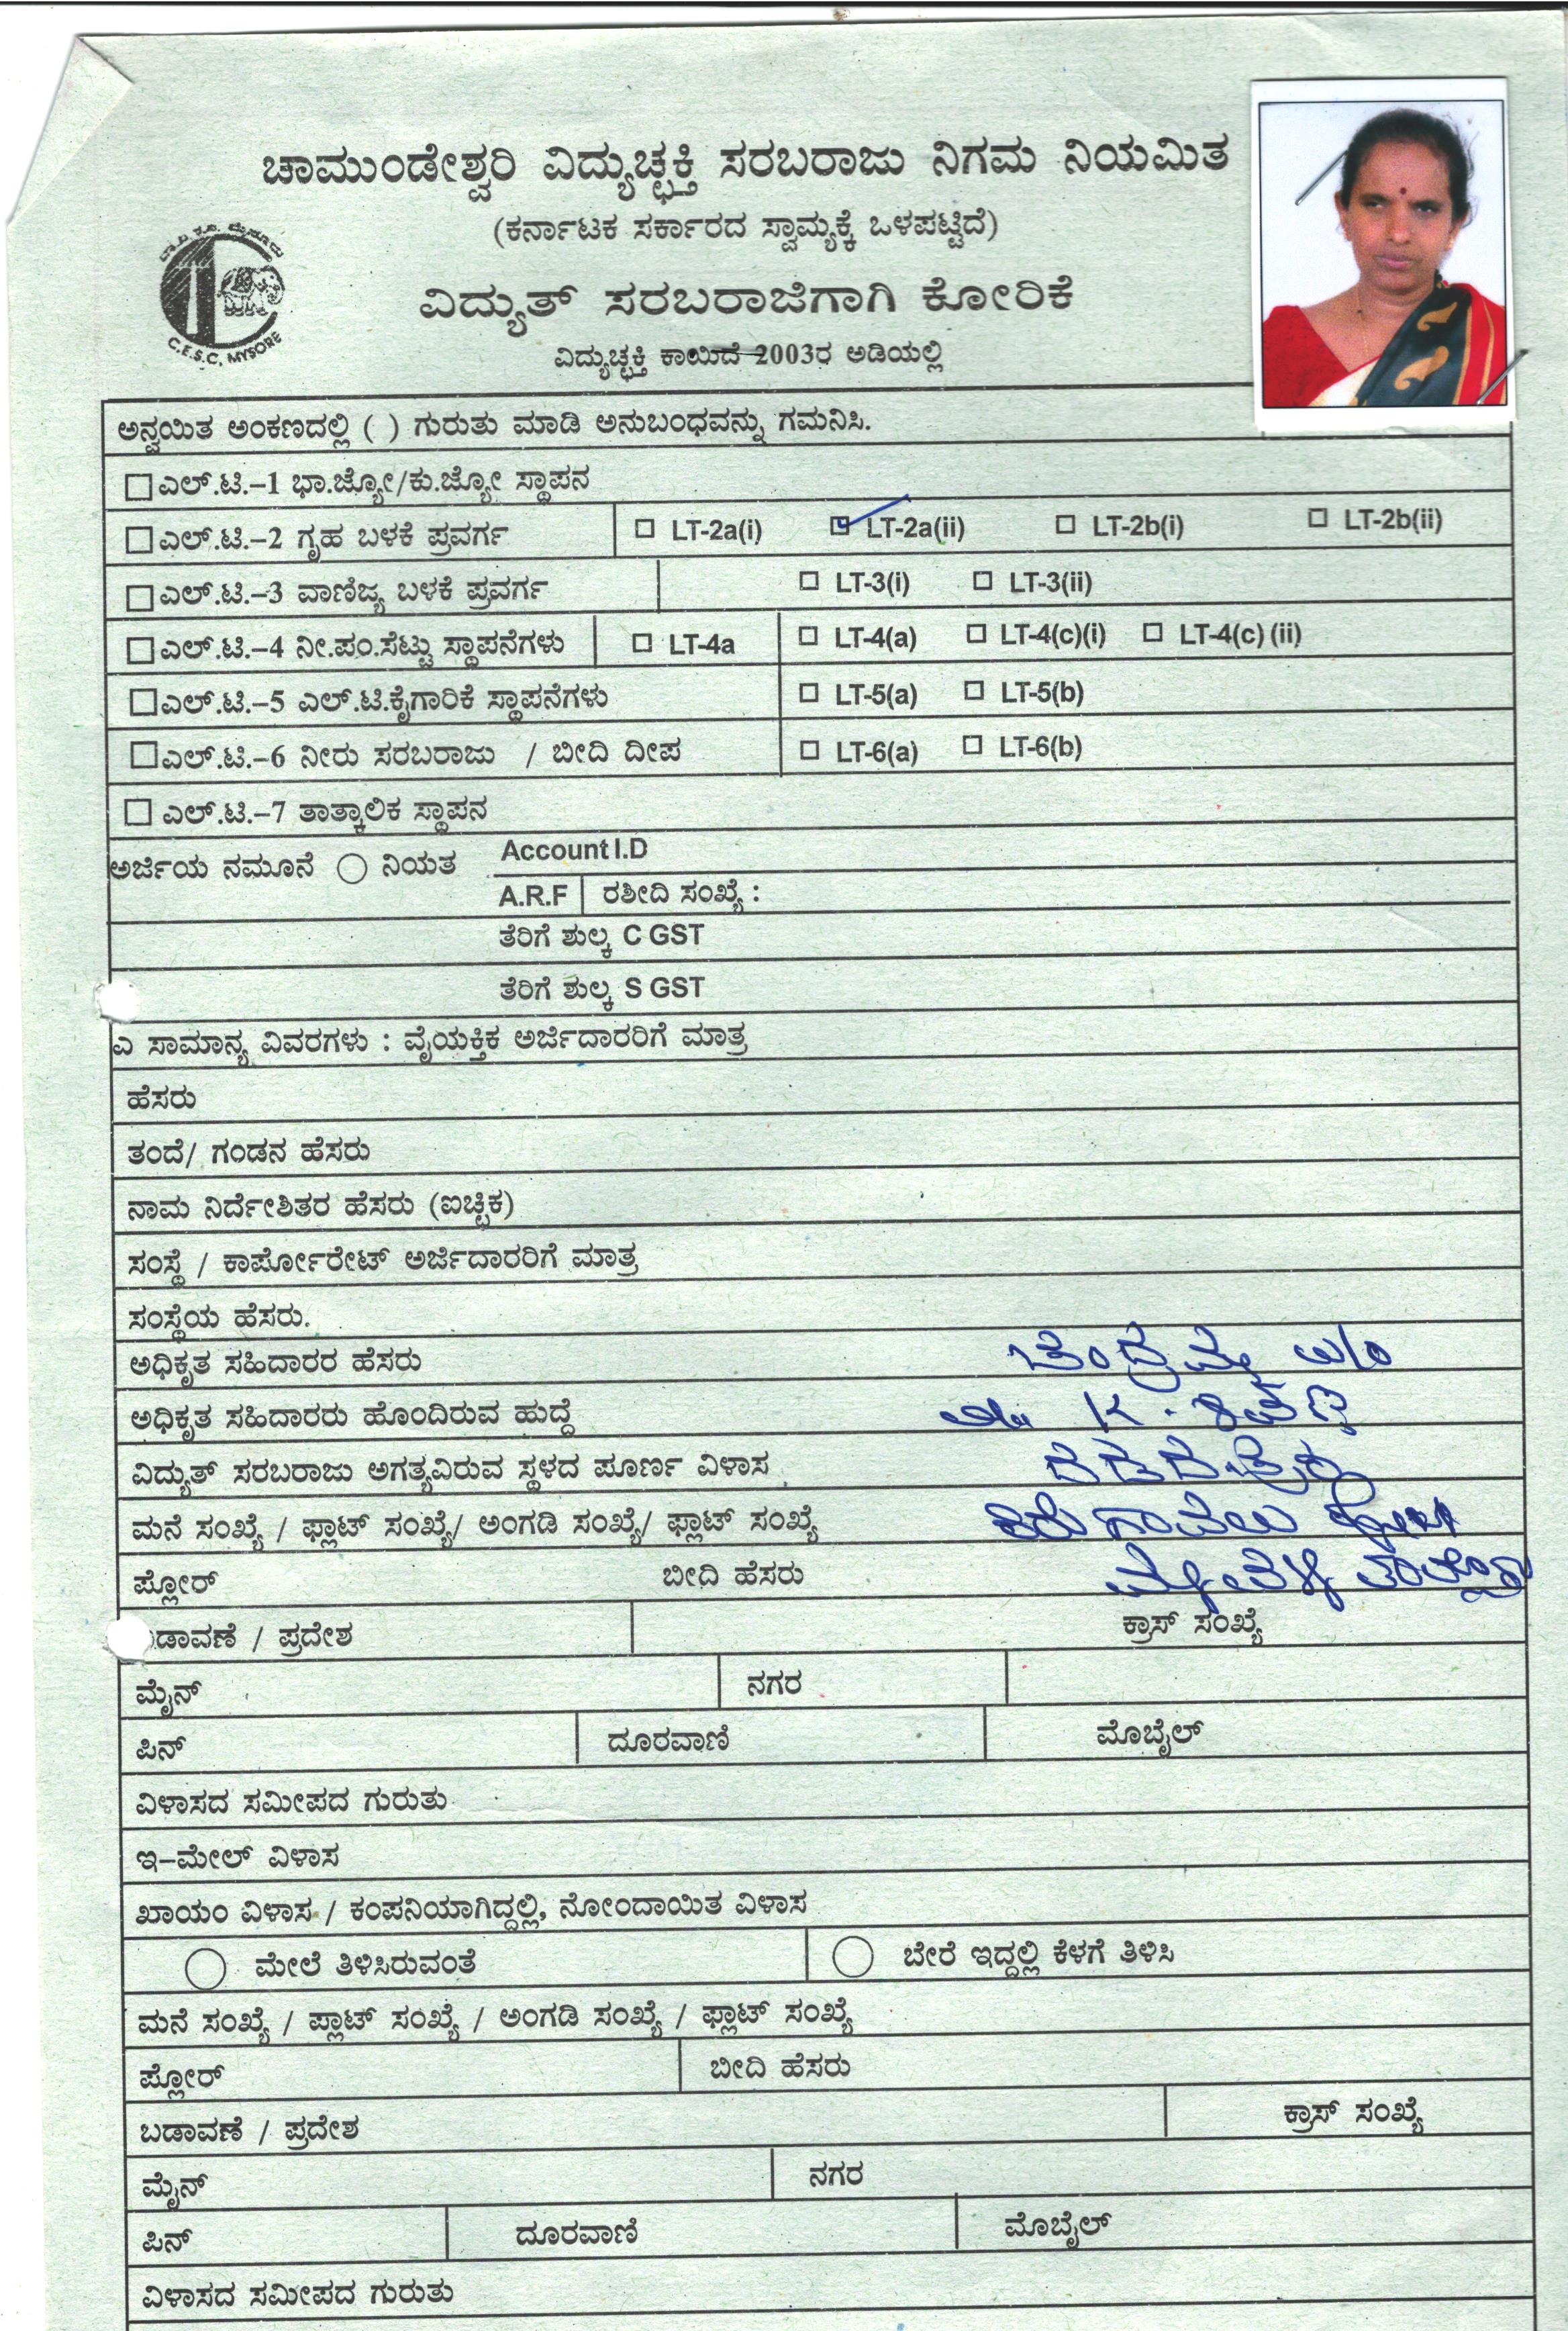 ಚಾಮುಂಡೇಶ್ವರಿ ವಿದ್ಯುಚ್ಛಕ್ತಿ ಸರಬರಾಜು ನಿಗಮ ನಿಯಮಿತ
(ಕರ್ನಾಟಕ ಸರ್ಕಾರದ ಸ್ವಾಮ್ಯಕ್ಕೆ ಒಳಪಟ್ಟಿದೆ)
C.E.S.C, MYSORE
ವಿದ್ಯುತ್ ಸರಬರಾಜಿಗಾಗಿ ಕೋರಿಕೆ
ವಿದ್ಯುಚ್ಛಕ್ತಿ ಕಾಯಿದೆ 2003ರ ಅಡಿಯಲ್ಲಿ
ಅನ್ವಯಿತ ಅಂಕಣದಲ್ಲಿ ( ) ಗುರುತು ಮಾಡಿ ಅನುಬಂಧವನ್ನು ಗಮನಿಸಿ.
ಎಲ್.ಟಿ.–1 ಭಾ.ಜ್ಯೋ/ಕು.ಜ್ಯೋ ಸ್ಥಾಪನ
ಎಲ್.ಟಿ.–2 ಗೃಹ ಬಳಕೆ ಪ್ರವರ್ಗ LT-2a(i) LT-2a(ii) LT-2b(i) LT-2b(ii)
ಎಲ್.ಟಿ.–3 ವಾಣಿಜ್ಯ ಬಳಕೆ ಪ್ರವರ್ಗ LT-3(i) LT-3(ii)
ಎಲ್.ಟಿ.–4 ನೀ.ಪಂ.ಸೆಟ್ಟು ಸ್ಥಾಪನೆಗಳು LT-4a LT-4(a) LT-4(c)(i) LT-4(c) (ii)
ಎಲ್.ಟಿ.–5 ಎಲ್.ಟಿ.ಕೈಗಾರಿಕೆ ಸ್ಥಾಪನೆಗಳು LT-5(a) LT-5(b)
ಎಲ್.ಟಿ.–6 ನೀರು ಸರಬರಾಜು / ಬೀದಿ ದೀಪ LT-6(a) LT-6(b)
ಎಲ್.ಟಿ.–7 ತಾತ್ಕಾಲಿಕ ಸ್ಥಾಪನ
ಅರ್ಜಿಯ ನಮೂನೆ ನಿಯತ Account I.D
A.R.F ರಶೀದಿ ಸಂಖ್ಯೆ :
ತೆರಿಗೆ ಶುಲ್ಕ C GST
ತೆರಿಗೆ ಶುಲ್ಕ S GST
ಎ ಸಾಮಾನ್ಯ ವಿವರಗಳು : ವೈಯಕ್ತಿಕ ಅರ್ಜಿದಾರರಿಗೆ ಮಾತ್ರ
ಹೆಸರು
ತಂದೆ/ ಗಂಡನ ಹೆಸರು
ನಾಮ ನಿರ್ದೇಶಿತರ ಹೆಸರು (ಐಚ್ಚಿಕ)
ಸಂಸ್ಥೆ / ಕಾರ್ಪೋರೇಟ್ ಅರ್ಜಿದಾರರಿಗೆ ಮಾತ್ರ
ಸಂಸ್ಥೆಯ ಹೆಸರು.
ಅಧಿಕೃತ ಸಹಿದಾರರ ಹೆಸರು
ಅಧಿಕೃತ ಸಹಿದಾರರು ಹೊಂದಿರುವ ಹುದ್ದೆ K.
ವಿದ್ಯುತ್ ಸರಬರಾಜು ಅಗತ್ಯವಿರುವ ಸ್ಥಳದ ಪೂರ್ಣ ವಿಳಾಸ
ಮನೆ ಸಂಖ್ಯೆ / ಫ್ಲಾಟ್ ಸಂಖ್ಯೆ/ ಅಂಗಡಿ ಸಂಖ್ಯೆ/ ಫ್ಲಾಟ್ ಸಂಖ್ಯೆ
ಫ್ಲೋರ್ ಬೀದಿ ಹೆಸರು
ಡಾವಣೆ / ಪ್ರದೇಶ ಕ್ರಾಸ್ ಸಂಖ್ಯೆ
ಮೈನ್ ನಗರ
ಪಿನ್ ದೂರವಾಣಿ ಮೊಬೈಲ್
ವಿಳಾಸದ ಸಮೀಪದ ಗುರುತು
ಇ–ಮೇಲ್ ವಿಳಾಸ
ಖಾಯಂ ವಿಳಾಸ / ಕಂಪನಿಯಾಗಿದ್ದಲ್ಲಿ, ನೋಂದಾಯಿತ ವಿಳಾಸ
ಮೇಲೆ ತಿಳಿಸಿರುವಂತೆ ಬೇರೆ ಇದ್ದಲ್ಲಿ ಕೆಳಗೆ ತಿಳಿಸಿ
ಮನೆ ಸಂಖ್ಯೆ / ಪ್ಲಾಟ್ ಸಂಖ್ಯೆ / ಅಂಗಡಿ ಸಂಖ್ಯೆ / ಫ್ಲಾಟ್ ಸಂಖ್ಯೆ
ಫ್ಲೋರ್ ಬೀದಿ ಹೆಸರು
ಬಡಾವಣೆ / ಪ್ರದೇಶ ಕ್ರಾಸ್ ಸಂಖ್ಯೆ
ಮೈನ್ ನಗರ
ಪಿನ್ ದೂರವಾಣಿ ಮೊಬೈಲ್
ವಿಳಾಸದ ಸಮೀಪದ ಗುರುತು